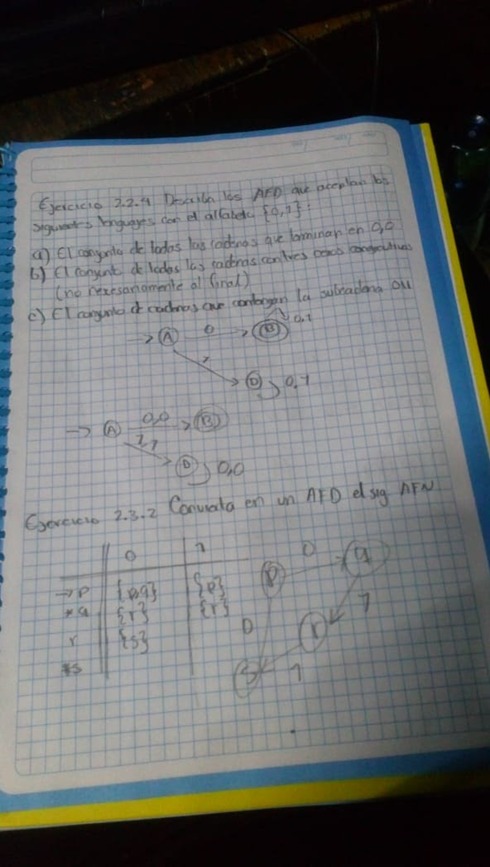 Ejercicio 2.2.4 Describa los AFD que aceptan los
siguientes lenguajes con el alfabeto {0,1}:
a) El conjunto de todas las cadenas que terminan en 0,0
b) El conjunto de todas las cadenas con tres ceros consecutivos
(no necesariamente al final)
c) El conjunto de cadenas que contengan la subcadena 011
→ A 0 B 0,1
1 D 0,1
→ A 0,0 B
1,1 D 0,0
Ejercicio 2.3.2 Convierta en un AFD el sig AFN
0 1
→p {p,q} {p}
*q {r} {r}
r {s}
*s
p 0 q
0 r 1
s 1